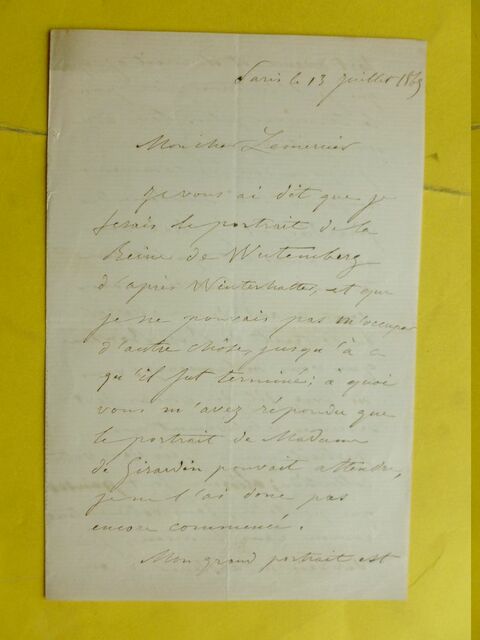 Paris le 13 Juillet 1865
Mon cher Lemercier
Je vous ai dit que je
ferais le portrait de la
Reine de Wurtemberg
d'après Winterhalter, et que
je ne pouvais pas m'occuper
d'autre chose, jusqu'à ce
qu'il fut terminé; à quoi
vous m'avez répondu que
le portrait de Madame
de Girardin pouvait attendre,
je ne l'ai donc pas
encore commencé.
Mon grand portrait est